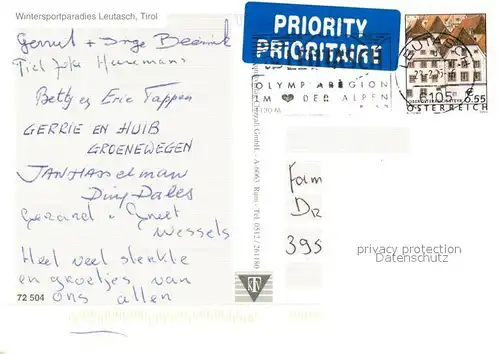 Wintersportparadies Leutasch, Tirol
Gerrit + Inge
Betty en Eric Tappen
GERRIE EN HUIB
GROENEWEGEN
JAN HASSELMAN
Diny Dales
Gerard
Wessels
Heel veel sterkte
en groetjes van
ons allen
72 504
A-6063 Rum - Tel. 0512/261180
PRIORITY
PRIORITAIRE
OLYMPIAREGION
IM ❤ DER ALPEN
6105
0,55
€
ÖSTERREICH
Fam
DR
395
privacy protection
Datenschutz